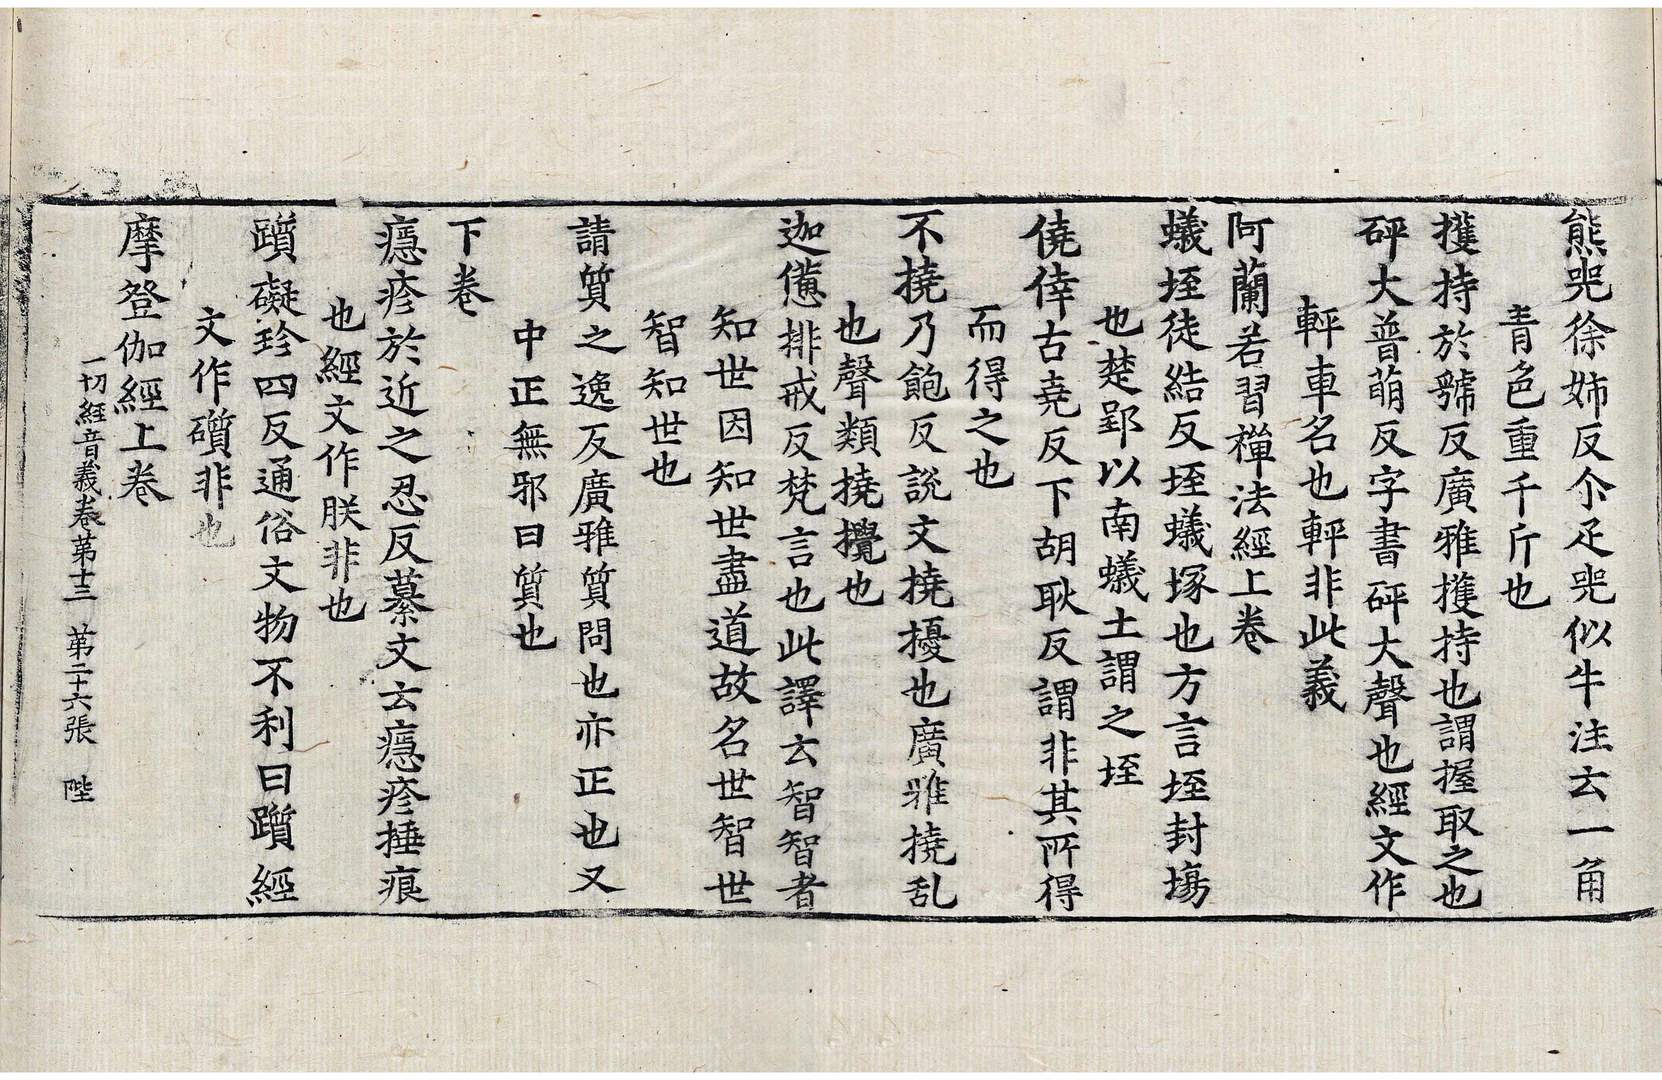 熊兕徐姉反尒疋兕似牛注云一角
青色重千斤也
擭持於虢反廣雅擭持也謂握取之也
砰大普萌反字書砰大聲也經文作
軯車名也軯非此義
阿蘭若習禪法經上卷
蟻垤徒結反垤蟻塚也方言垤封塲
也楚郢以南蟻土謂之垤
僥倖古堯反下胡耿反謂非其所得
而得之也
不撓乃飽反說文撓擾也廣雅撓乱
也聲類撓攪也
迦憊排戒反梵言也此譯云智智者
知世因知世盡道故名世智世
智知世也
請質之逸反廣雅質問也亦正也又
中正無邪曰質也
下卷
癮疹於近之忍反纂文云癮疹捶痕
也經文作朕非也
躓礙珍四反通俗文物不利曰躓經
文作礩非也
摩登伽經上卷
一切經音義卷第十三 第二十六張 陛